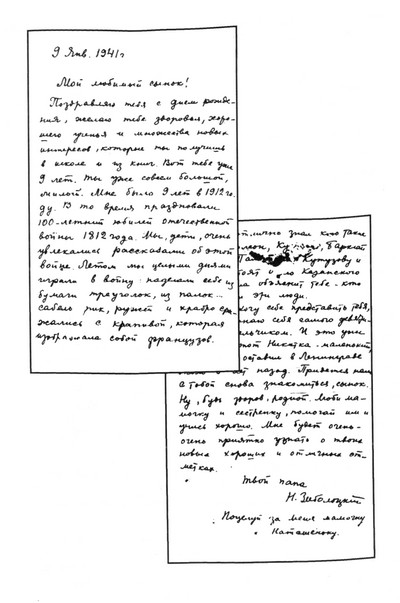 9 Янв. 1941 г
Мой любимый сынок!
Поздравляю тебя с днем рожде-
ния, желаю тебе здоровья, хоро-
шего ученья и множества новых
интересов, которые ты получишь
в школе и из книг. Вот тебе уже
9 лет. Ты уже совсем большой,
милой. Мне было 9 лет в 1912 го-
ду. В то время праздновали
100-летний юбилей отечественной
войны 1812 года. Мы, дети, очень
увлекались рассказами об этой
войне. Летом мы целыми днями
играли в войну: наделали себе из
бумаги треуголок, из палок...
сабель, пик, ружей и храбро сра-
жались с крапивой, которая
изображала собой французов.
знал кто такие
Барклай
Кутузову и
Казанского
объяснит тебе - кто
эти люди.
хочу себе представить тебя,
себя самого девяти-
И это уже
тот Никитка - маленький,
оставил в Ленинграде
лет назад. Придется нам
с тобой снова знакомиться, сынок.
Ну, будь здоров, родной. Люби ма-
мочку и сестренку, помогай им и
учись хорошо. Мне будет очень-
очень приятно узнать о твоих
новых хороших и отличных от-
метках.
Твой папа
Н. Заболоцкий
Поцелуй за меня мамочку
Наташеньку.